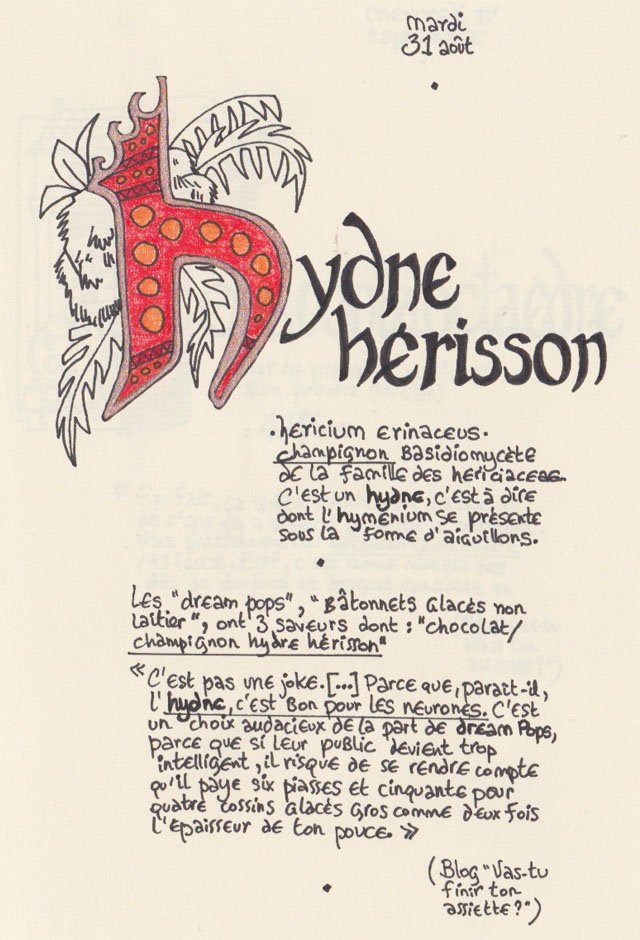 mardi
31 août
hydne
hérisson
. hericium erinaceus .
champignon Basidiomycète
de la famille des hericiaceae.
C'est un hydne, c'est à dire
dont l'hyménium se présente
sous la forme d'aiguillons.
Les "dream pops", "Bâtonnets Glacés non
laitier", ont 3 saveurs dont : "chocolat/
champignon hydre hérisson"
« C'est pas une joke. [...] Parce que, parait-il,
l'hydne, c'est bon pour les neurones. C'est
un choix audacieux de la part de dream Pops,
parce que si leur public devient trop
intelligent, il risque de se rendre compte
qu'il paye six piasses et cinquante pour
quatre cossins Glacés Gros comme deux fois
l'épaisseur de ton pouce. »
(Blog "Vas-tu
finir ton
assiette?")